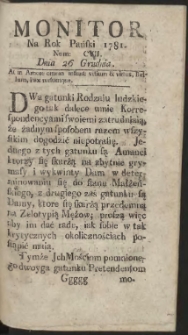 MONITOR
Na Rok Pański 1781.
Num: CIII.
Dnia 26 Grudnia.
DWa gatunki Rodzaiu ludzkie-
go tak dalece unie Korre-
spondencyami swoiemi zatrudniaią,
że żadnym sposobem razem wszy-
stkim dogodzić niepotrafię. Je-
dnego z tych gatunku są Amanci
którzy się skarżą na zbytnie gry-
masy i wykwinty Dam w deter-
minowaniu się do stanu Małżeń-
skiego, z drugiego zaś gatunku są
Damy, które się skarżą przedemną
na Zelotypią Mężów; proszą więc
aby im dać radę, iak sobie w tak
krytycznych okolicznościach po-
stąpić maią.
Tymże JchMościom pomienione-
go dwoyga gatunku Pretendentom
Ggggg mo-